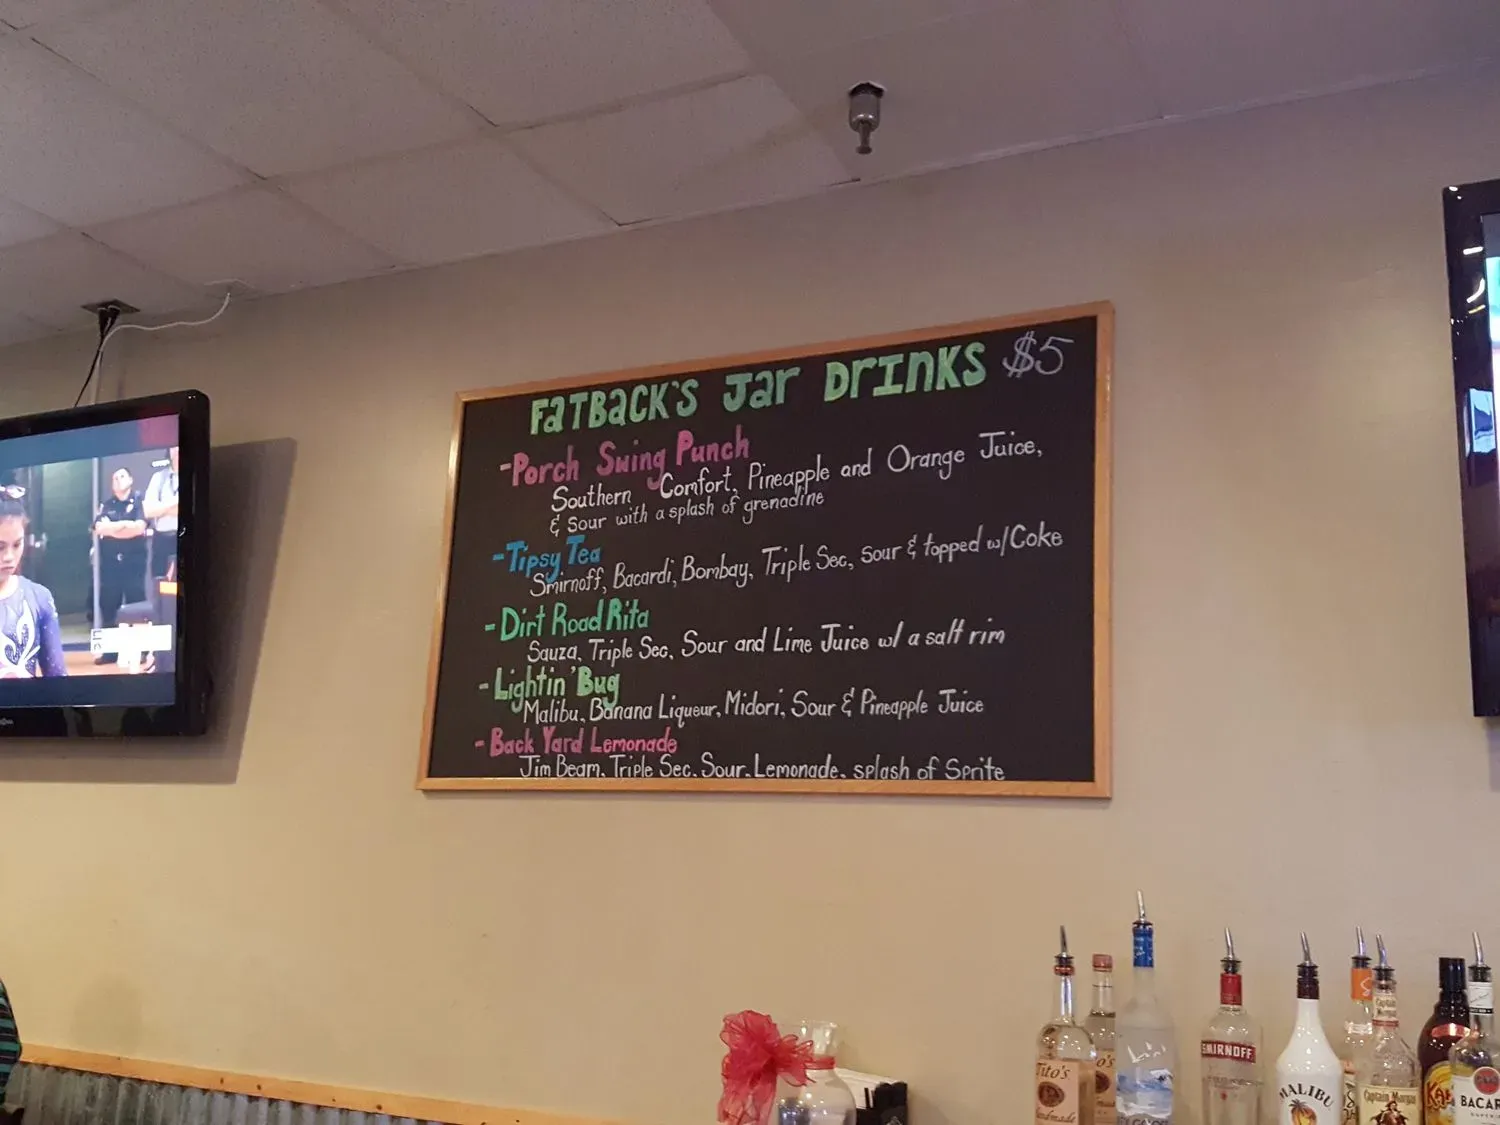 FATBACK'S JAR DRINKS $5
-Porch Swing Punch
Southern Comfort, Pineapple and Orange Juice,
& sour with a splash of grenadine
-Tipsy Tea
Smirnoff, Bacardi, Bombay, Triple Sec, sour & topped w/Coke
-Dirt Road Rita
Sauza, Triple Sec, Sour and Lime Juice w/ a salt rim
-Lightin' Bug
Malibu, Banana Liqueur, Midori, Sour & Pineapple Juice
-Back Yard Lemonade
Jim Beam, Triple Sec, Sour, Lemonade, splash of Sprite
Tito's
Handmade
SMIRNOFF
MALIBU
Captain Morgan
BACAR